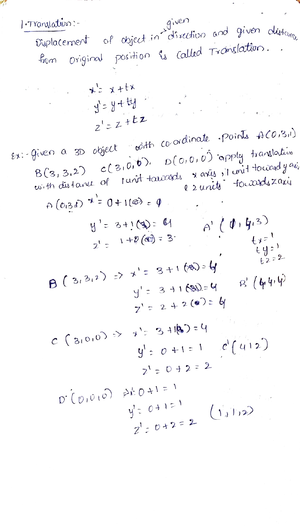 1. Translation:-
given
Displacement of object in direction and given distance
from original position is called Translation.
x' = x + tx
y' = y + ty
z' = z + tz
Ex:- given a 3D object with co-ordinate points A(0,3,1)
B(3,3,2) C(3,0,0), D(0,0,0) apply translation
with distance of 1 unit towards x axis, 1 unit toward y axis,
& 2 units towards z axis
A(0,3,1) x' = 0+1 =
y' = 3+1 = 4
z' = 1+2 = 3
A' (1,4,3)
tx = 1
ty = 1
tz = 2
B (3,3,2) => x' = 3+1 = 4
y' = 3+1 = 4
z' = 2+2 = 4
B' (4,4,4)
C (3,0,0) => x' = 3+1 = 4
y' = 0+1 = 1 C' (4 1 2)
z' = 0+2 = 2
D (0,0,0) 0+1 = 1
y' = 0+1 = 1
z' = 0+2 = 2 (1,1,2)